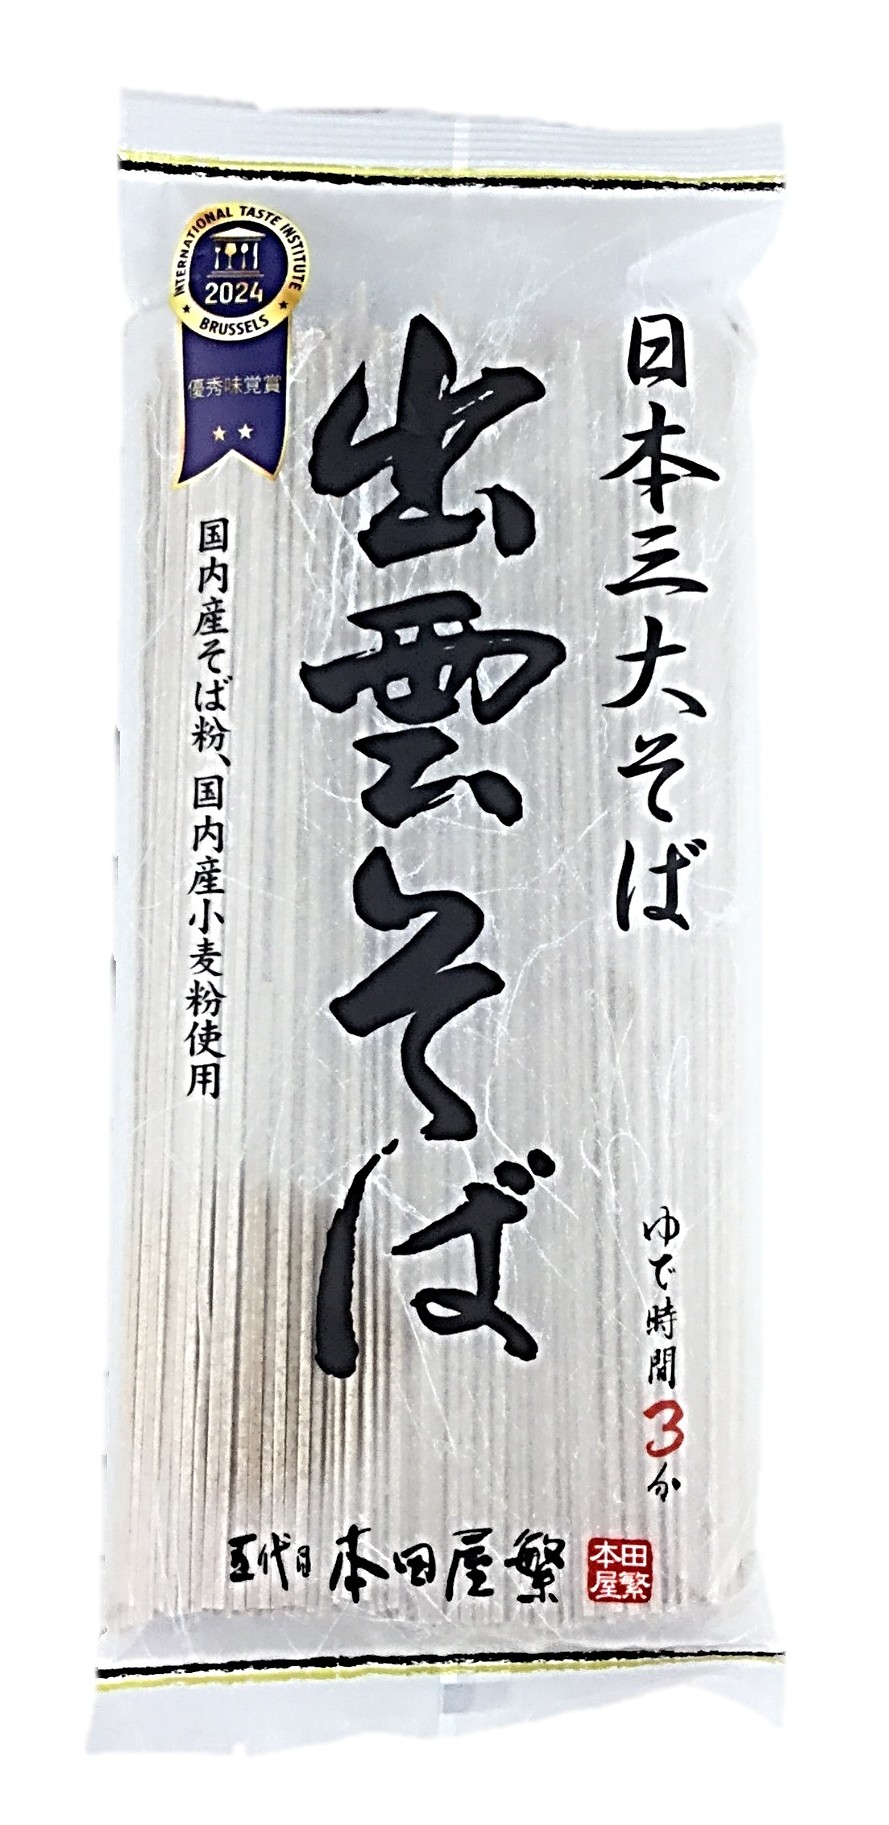 日本三大そば
ゆで時間3分
出雲そば
INTERNATIONAL TASTE INSTITUTE
2024
BRUSSELS
優秀味覚賞
国内産そば粉、国内産小麦粉使用
五代目 本田屋繁
本田
屋繁